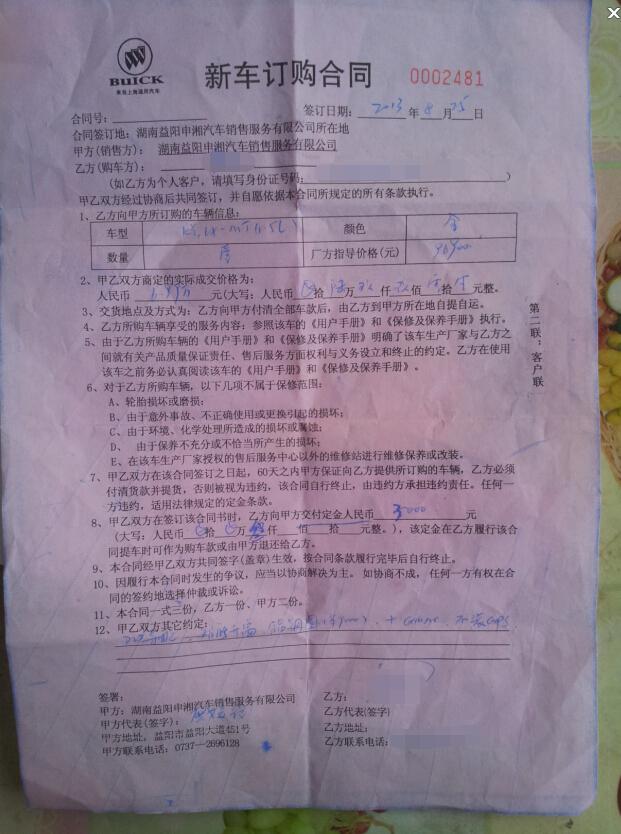 BUICK
来自上海通用汽车
新车订购合同
0002481
合同号：
签订日期：2013年8月25日
合同签订地：湖南益阳申湘汽车销售服务有限公司所在地
甲方(销售方)：湖南益阳申湘汽车销售服务有限公司
乙方(购车方)：
(如乙方为个人客户，请填写身份证号码：)
甲乙双方经过协商后共同签订，并自愿依据本合同所规定的所有条款执行。
1、乙方向甲方所订购的车辆信息：
车型 颜色 金
数量 厂方指导价格(元) 96900
2、甲乙双方商定的实际成交价格为：
人民币 元(大写：人民币 拾 万 仟 佰 拾 元整。
3、交货地点及方式为：乙方向甲方付清全部车款后，由乙方到甲方所在地自提自运。
4、乙方所购车辆享受的服务内容：参照该车的《用户手册》和《保修及保养手册》执行。
5、由于乙方所购车辆的《用户手册》和《保修及保养手册》明确了该车生产厂家与乙方之
间就有关产品质量保证责任、售后服务方面权利与义务设立和终止的约定。乙方在使用
该车之前务必认真阅读该车的《用户手册》和《保修及保养手册》。
6、对于乙方所购车辆，以下几项不属于保修范围：
A、轮胎损坏或磨损；
B、由于意外事故、不正确使用或更换引起的损坏；
C、由于环境、化学处理所造成的损坏或腐蚀；
D、 由于保养不充分或不恰当所产生的损坏；
E、在该车生产厂家授权的售后服务中心以外的维修站进行维修保养或改装。
7、甲乙双方在该合同签订之日起，60天之内甲方保证向乙方提供所订购的车辆，乙方必须
付清货款并提货，否则被视为违约，该合同自行终止，由违约方承担违约责任。任何一
方违约，适用法律规定的定金条款。
8、甲乙双方在签订该合同书时，乙方向甲方交付定金人民币 元
(大写：人民币 拾 万 仟 佰 拾 元整。)，该定金在乙方履行该合
同提车时可作为购车款或由甲方退还给乙方。
9、本合同经甲乙双方共同签字(盖章)生效，按合同条款履行完毕后自行终止。
10、因履行本合同时发生的争议，应当以协商解决为主。如协商不成，任何一方有权在合
同的签约地选择仲裁或诉讼。
11、本合同一式三份，乙方一份、甲方二份。
12、甲乙双方其它约定：
第二联：客户联
签署：
甲方：湖南益阳申湘汽车销售服务有限公司
甲方代表(签字)：
甲方地址：益阳市益阳大道451号
甲方联系电话：0737—2696128
乙方：
乙方代表(签字)
乙方地址：
乙方联系电话：